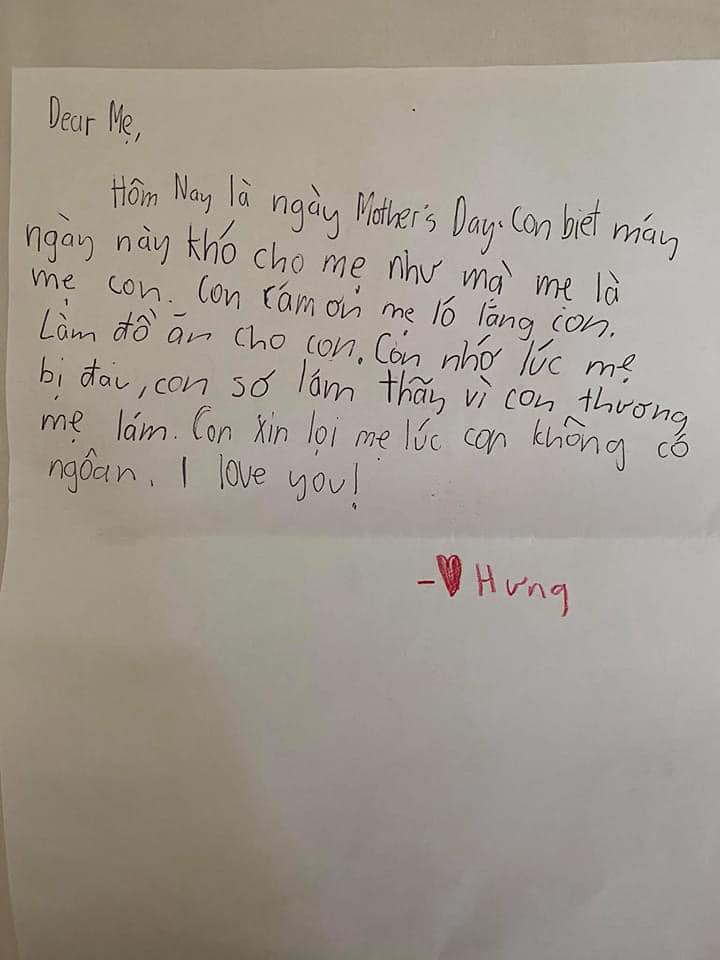 Dear Mẹ,
Hôm Nay là ngày Mother's Day. Con biết máy
ngày này khó cho mẹ như mà mẹ là
mẹ con. Con cám ơn mẹ ló lắng con.
Làm đồ ăn cho con. Con nhớ lúc mẹ
bị đau, con sợ lám thấy vì con thương
mẹ lám. Con xin lọi mẹ lúc con không có
ngôan. I love you!
-♥ Hưng